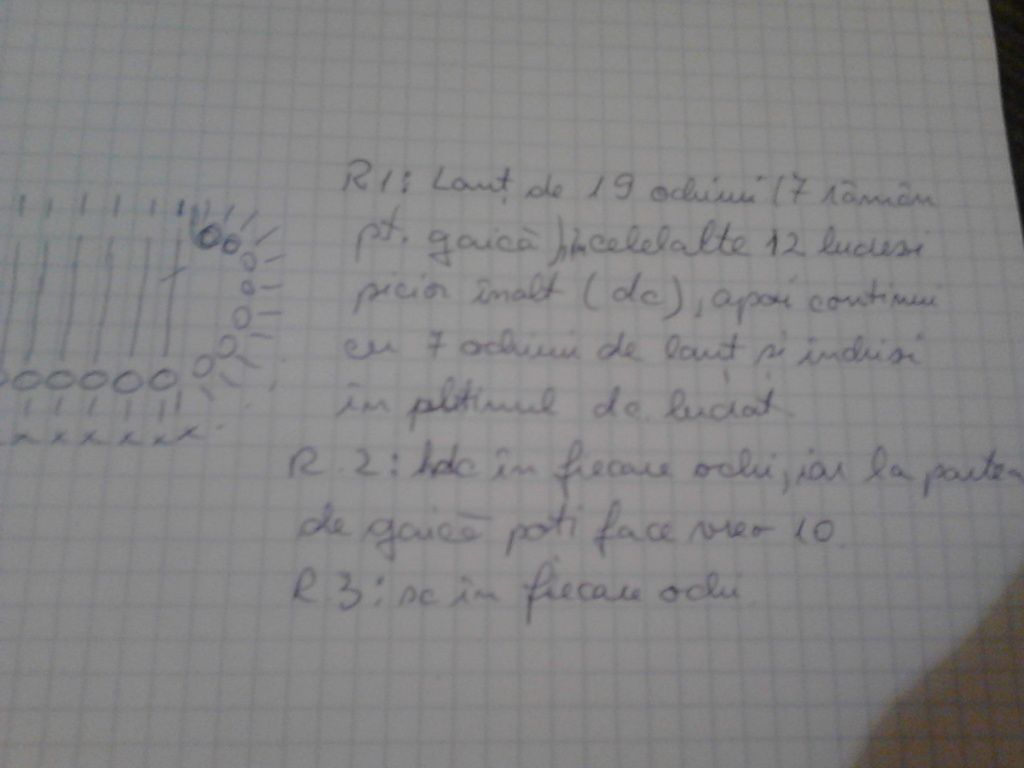 R1: Lanț de 19 ochiuri (7 rămân
pt. gaică), în celelalte 12 lucrezi
picior înalt (dc), apoi continui
cu 7 ochiuri de lanț și închizi
în peticul de lucrat
R. 2: hdc în fiecare ochi, iar la partea
de gaică poti face vreo 10
R 3: sc în fiecare ochi